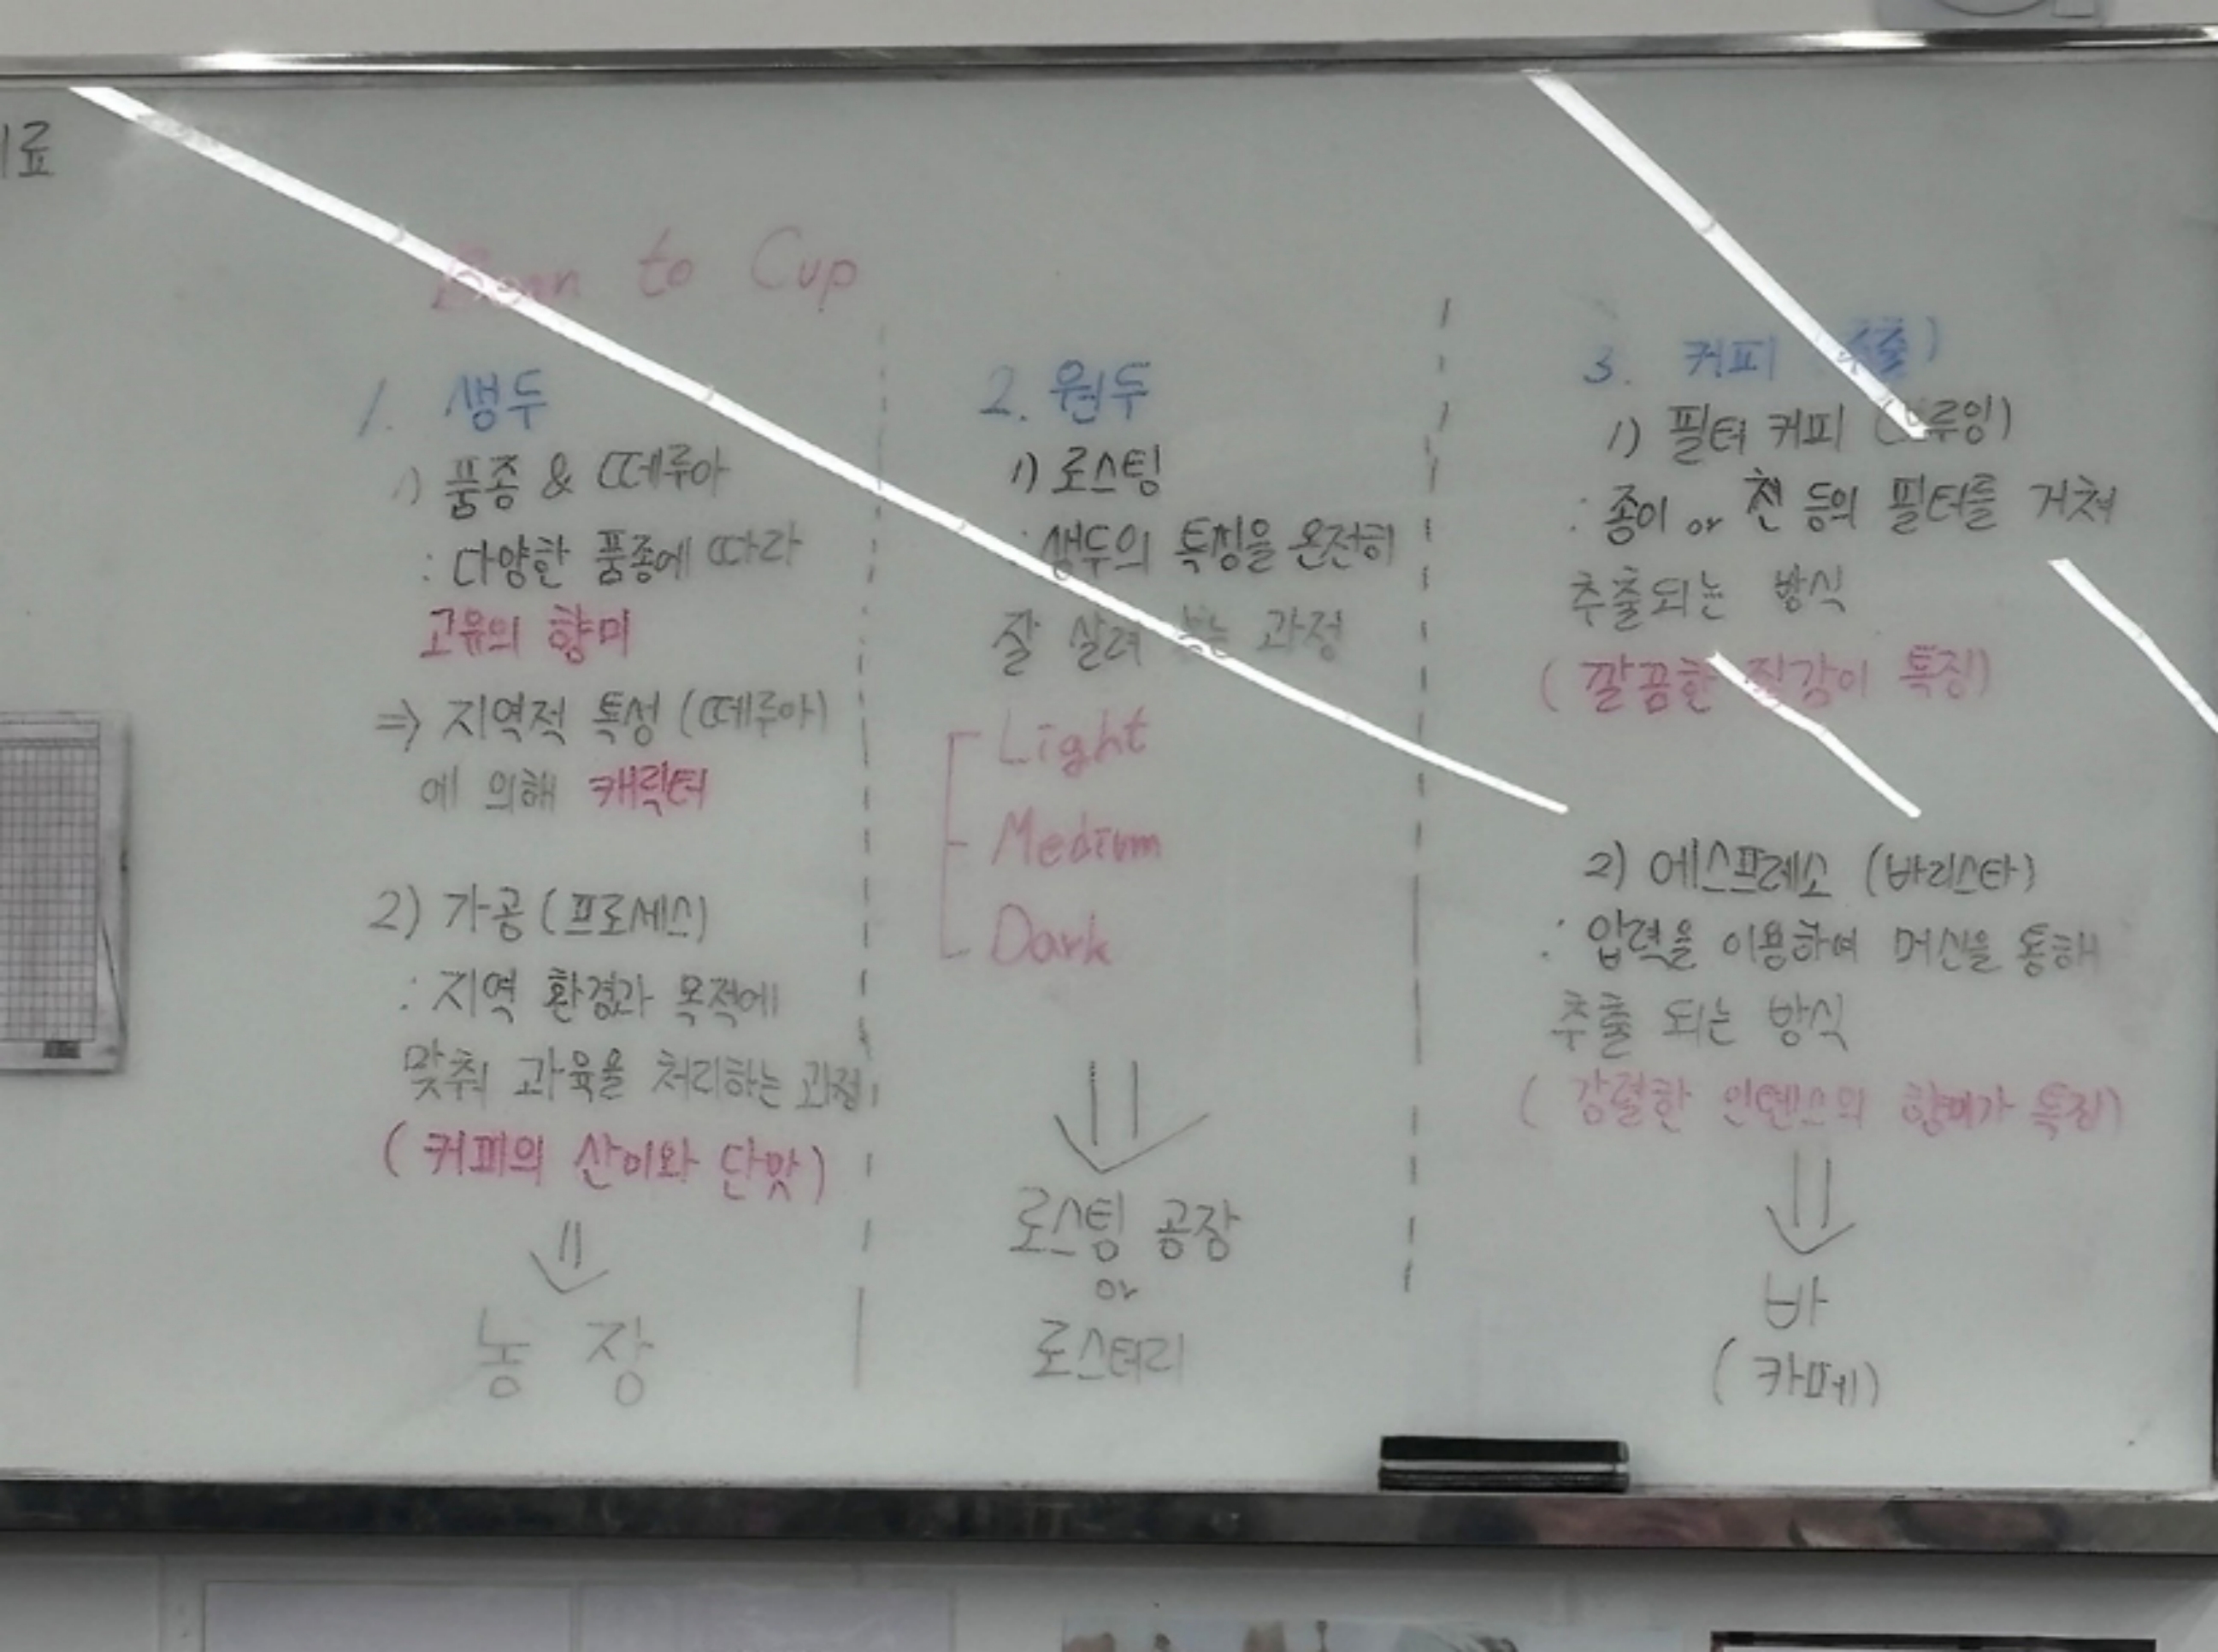 to Cup
1. 생두
1) 품종 & 떼루아
: 다양한 품종에 따라
고유의 향미
⇒ 지역적 특성 (떼루아)
에 의해 캐릭터
2) 가공 (프로세스)
: 지역 환경과 목적에
맞춰 과육을 처리하는 과정
( 커피의 산미와 단맛 )
농 장
2. 원두
1) 로스팅
: 생두의 특징을 온전히
잘 살려 과정
Light
Medium
Dark
로스팅 공장
or
로스터리
3. 커피
1) 필터 커피
: 종이 or 천 등의 필터를 거쳐
추출되는 방식
( 깔끔한 특징)
2) 에스프레소 (바리스타)
: 압력을 이용하여 머신을 통해
추출 되는 방식
( 강렬한 인텐스의 향미가 특징)
바
( 카페)